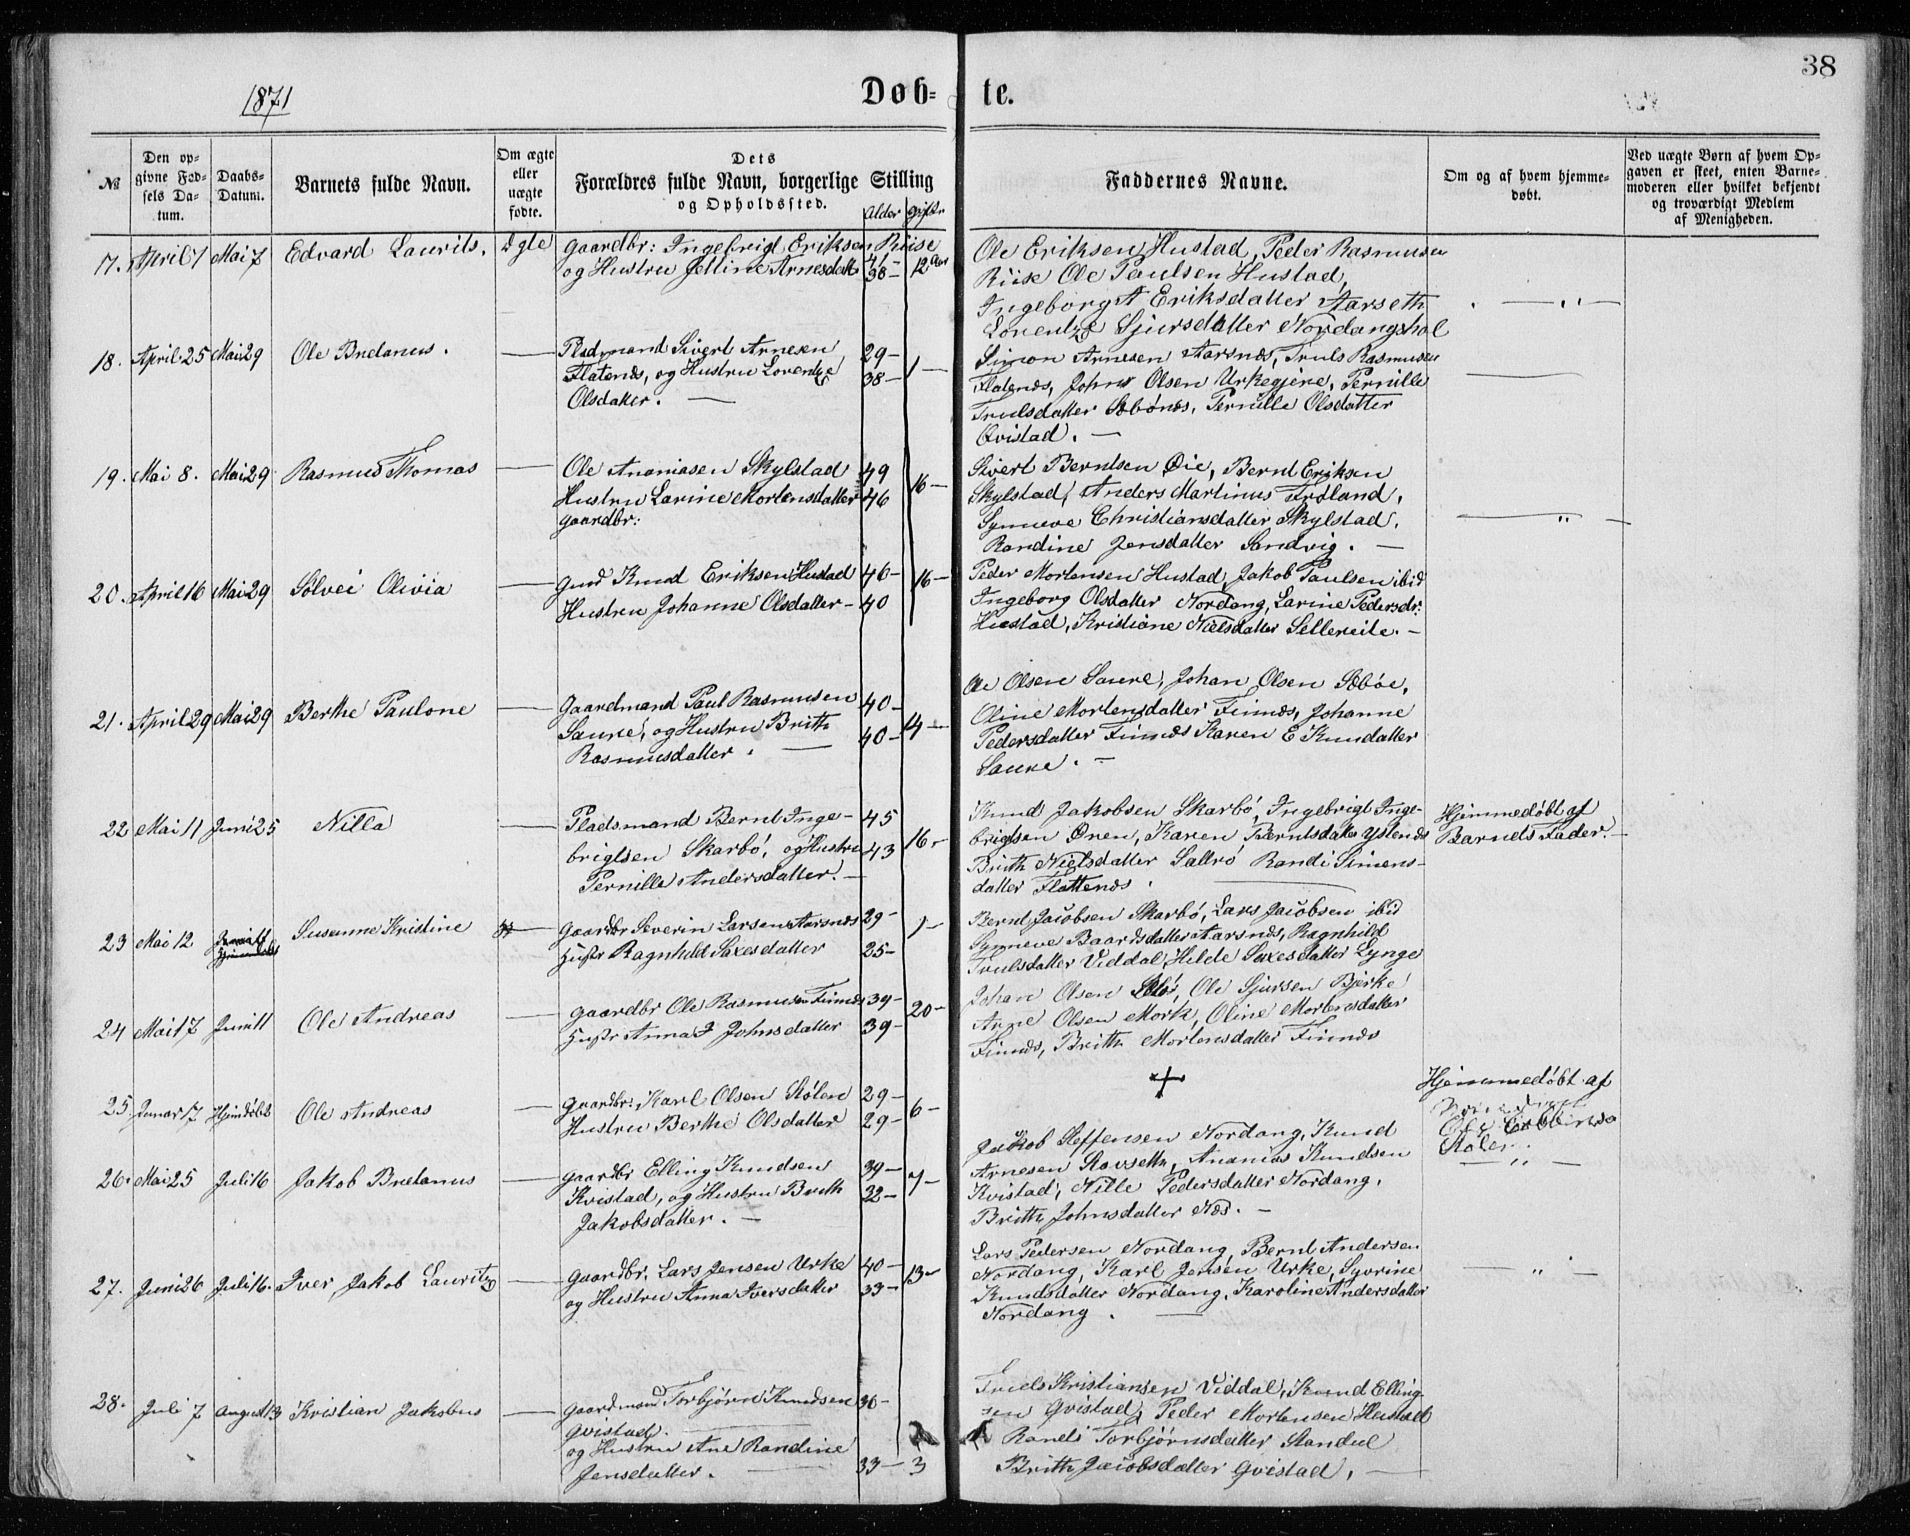 38
1871
Døb- te.
№
Den op-
givne Fød-
sels Da-
tum.
Daabs-
Datum.
Barnets fulde Navn.
Om ægte
eller
uægte
fødte.
Dets
Forældres fulde Navn, borgerlige Stilling
og Opholdssted.
Alder
Faddernes Navne.
Om og af hvem hjemme-
døbt.
Ved uægte Børn af hvem Op-
gaven er skeet, enten Barne-
moderen eller hvilket bekjendt
og troværdigt Medlem
af Menigheden.
17. April 7 Mai 7 Edvard Laurits. Ægte
Gaardbr: Ingebrigt Eriksen Riise 41
og Hustru Jelline Arnesdatter 38 - 12 Aar
Ole Eriksen Hustad, Peder Rasmusen
Riise Ole Paulsen Hustad,
Ingeborg A Eriksdatter Aarseth
Lorentze Sjursdatter Nordangshol
18. April 25 Mai 29 Ole Bretanus. —
Pladsmand Sivert Arnesen 29 -
Flatenæs, og Hustru Lorentze 38 - 1 -
Olsdatter. —
Simon Arnesen Aarsnæs, Truls Rasmusen
Flatenæs, John Olsen Urkegjere, Pernille
Trulsdatter Sæbønes, Pernille Olsdatter
Qvistad. —
19. Mai 8. Mai 29 Rasmus Thomas —
Ole Ananiasen Skylstad 49
Hustru Larine Mortensdatter 46 16 -
Gaardbr:
Sivert Berntsen Øie, Bernt Eriksen
Skylstad, Anders Martinus Frøland,
Synneve Christiansdatter Skylstad,
Randine Jensdatter Sandvig. —
20. April 16 Mai 29 Sølvei Olivia —
Gmd Knud Eriksen Hustad 46 - 16 -
Hustru Johanne Olsdatter - 40
Peder Mortensen Hustad, Jakob Paulsen ibid
Ingeborg Olsdatter Nordang, Larine Pedersdr:
Hustad, Kristiane Nielsdatter Sellereite. —
21. April 29 Mai 29 Berthe Paulone —
Gaardmand Paul Rasmusen 40 -
Saure, og Hustru Brith 40 - 14 -
Rasmusdatter. —
Ole Olsen Saure, Johan Olsen Sæbøe,
Oline Mortensdatter Finnæs, Johanne
Pedersdatter Finnæs Karen E Knudatter
Saure. —
22 Mai 11 Juni 25 Nilla —
Pladsmand Bernt Inge- 45
brigtsen Skarbø, og Hustru 43 16 -
Pernille Andersdatter. —
Knud Jakobsen Skarbø, Ingebrigt Inge-
brigtsen Øren, Karen Berntsdatter Ystenæs
Brith Nielsdatter Saltrø Randi Simens-
datter Flattenæs.
Hjemmedøbt af
Barnets Fader. —
23 Mai 12 Susanne Kristine
Gaardbr Severin Larsen Aarsnæs 29 -
Hustr Ragnhild Saxesdatter 25 - 1 -
Bernt Jacobsen Skarbø, Lars Jacobsen ibid
Synneve Baardsdatter Aarsnæs, Ragnhild
Trulsdatter Viddal, Hilde Saxesdatter Lynge
24 Mai 17 Juni 11 Ole Andreas —
Gaardbr Ole Rasmusen Finnæs 39 -
Hustr Anna J Johnsdatter 39 - 20 -
Johan Olsen Ole Sjursen Bjerke
Anne Olsen Mork, Oline Mortensdatter
Finnæs, Brith Mortensdatter Finnæs
25. Januar 17 Hjemdøbt Ole Andreas —
Gaardbr: Karl Olsen Stølen 29 -
Hustru Berthe Olsdatter 29 - 6 -
+
Hjemmedøbt af
Stølen.
26. Mai 25 Juli 16 Jakob Bretanus —
Gaardbr Elling Knudsen 39 -
Kvistad, og Hustru Brith 32 - 7 -
Jakobsdatter. —
Jakob Steffensen Nordang, Knud
Arnesen Stavseth, Ananias Knudsen
Kvistad, Nille Pedersdatter Nordang.
Brith Johnsdatter Næs. —
27. Juni 26 Juli 16. Iver Jakob Lauritz —
Gaardbr. Lars Jensen Urke 40 -
og Hustru Anna Iversdatter 33 - 13 -
Lars Pedersen Nordang, Bernt Andersen
Nordang, Karl Jensen Urke, Syvrine
Knudsdatter Nordang, Karoline Andersdatter
Nordang. —
28. Juli 7 August 13 Kristian Jakobus —
Gaardmand Torbjørn Knudsen 36 -
Qvistad.
og Hustru Ane Randine
Jensdatter. 33 - 3
Truls Kristiansen Viddal, Knud Elling-
sen Qvistad, Peder Mortensen Hustad
Randi Torbjørnsdatter Standal
Brith Jacobsdatter Qvistad. —